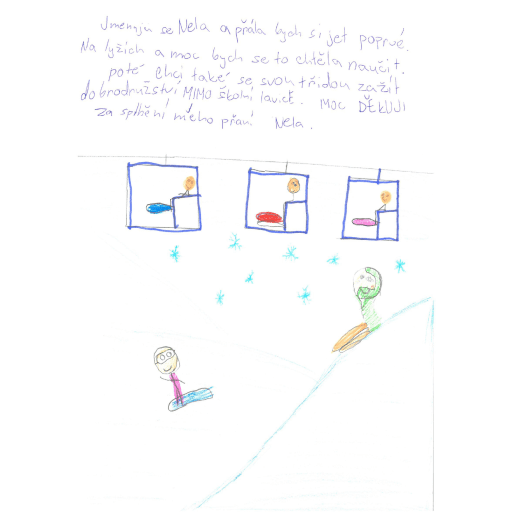 Jmenuju se Nela a přála bych si jet poprvé.
Na lyžích a moc bych se to chtěla naučit.
poté chci také se svou třídou zažít
dobrodružství MIMO školní lavice. Moc DĚKUJI
za splnění mého přání Nela.